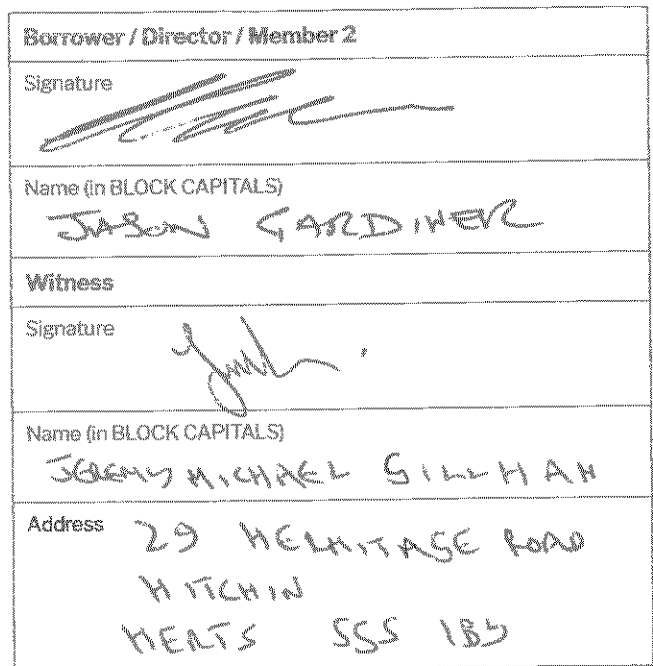 Borrower / Director / Member 2
Signature
Name (in BLOCK CAPITALS)
JASON GARDINER
Witness
Signature
Name (in BLOCK CAPITALS)
JEREMY MICHAEL GILLHAM
Address 29 HERMITAGE ROAD
HITCHIN
HERTS